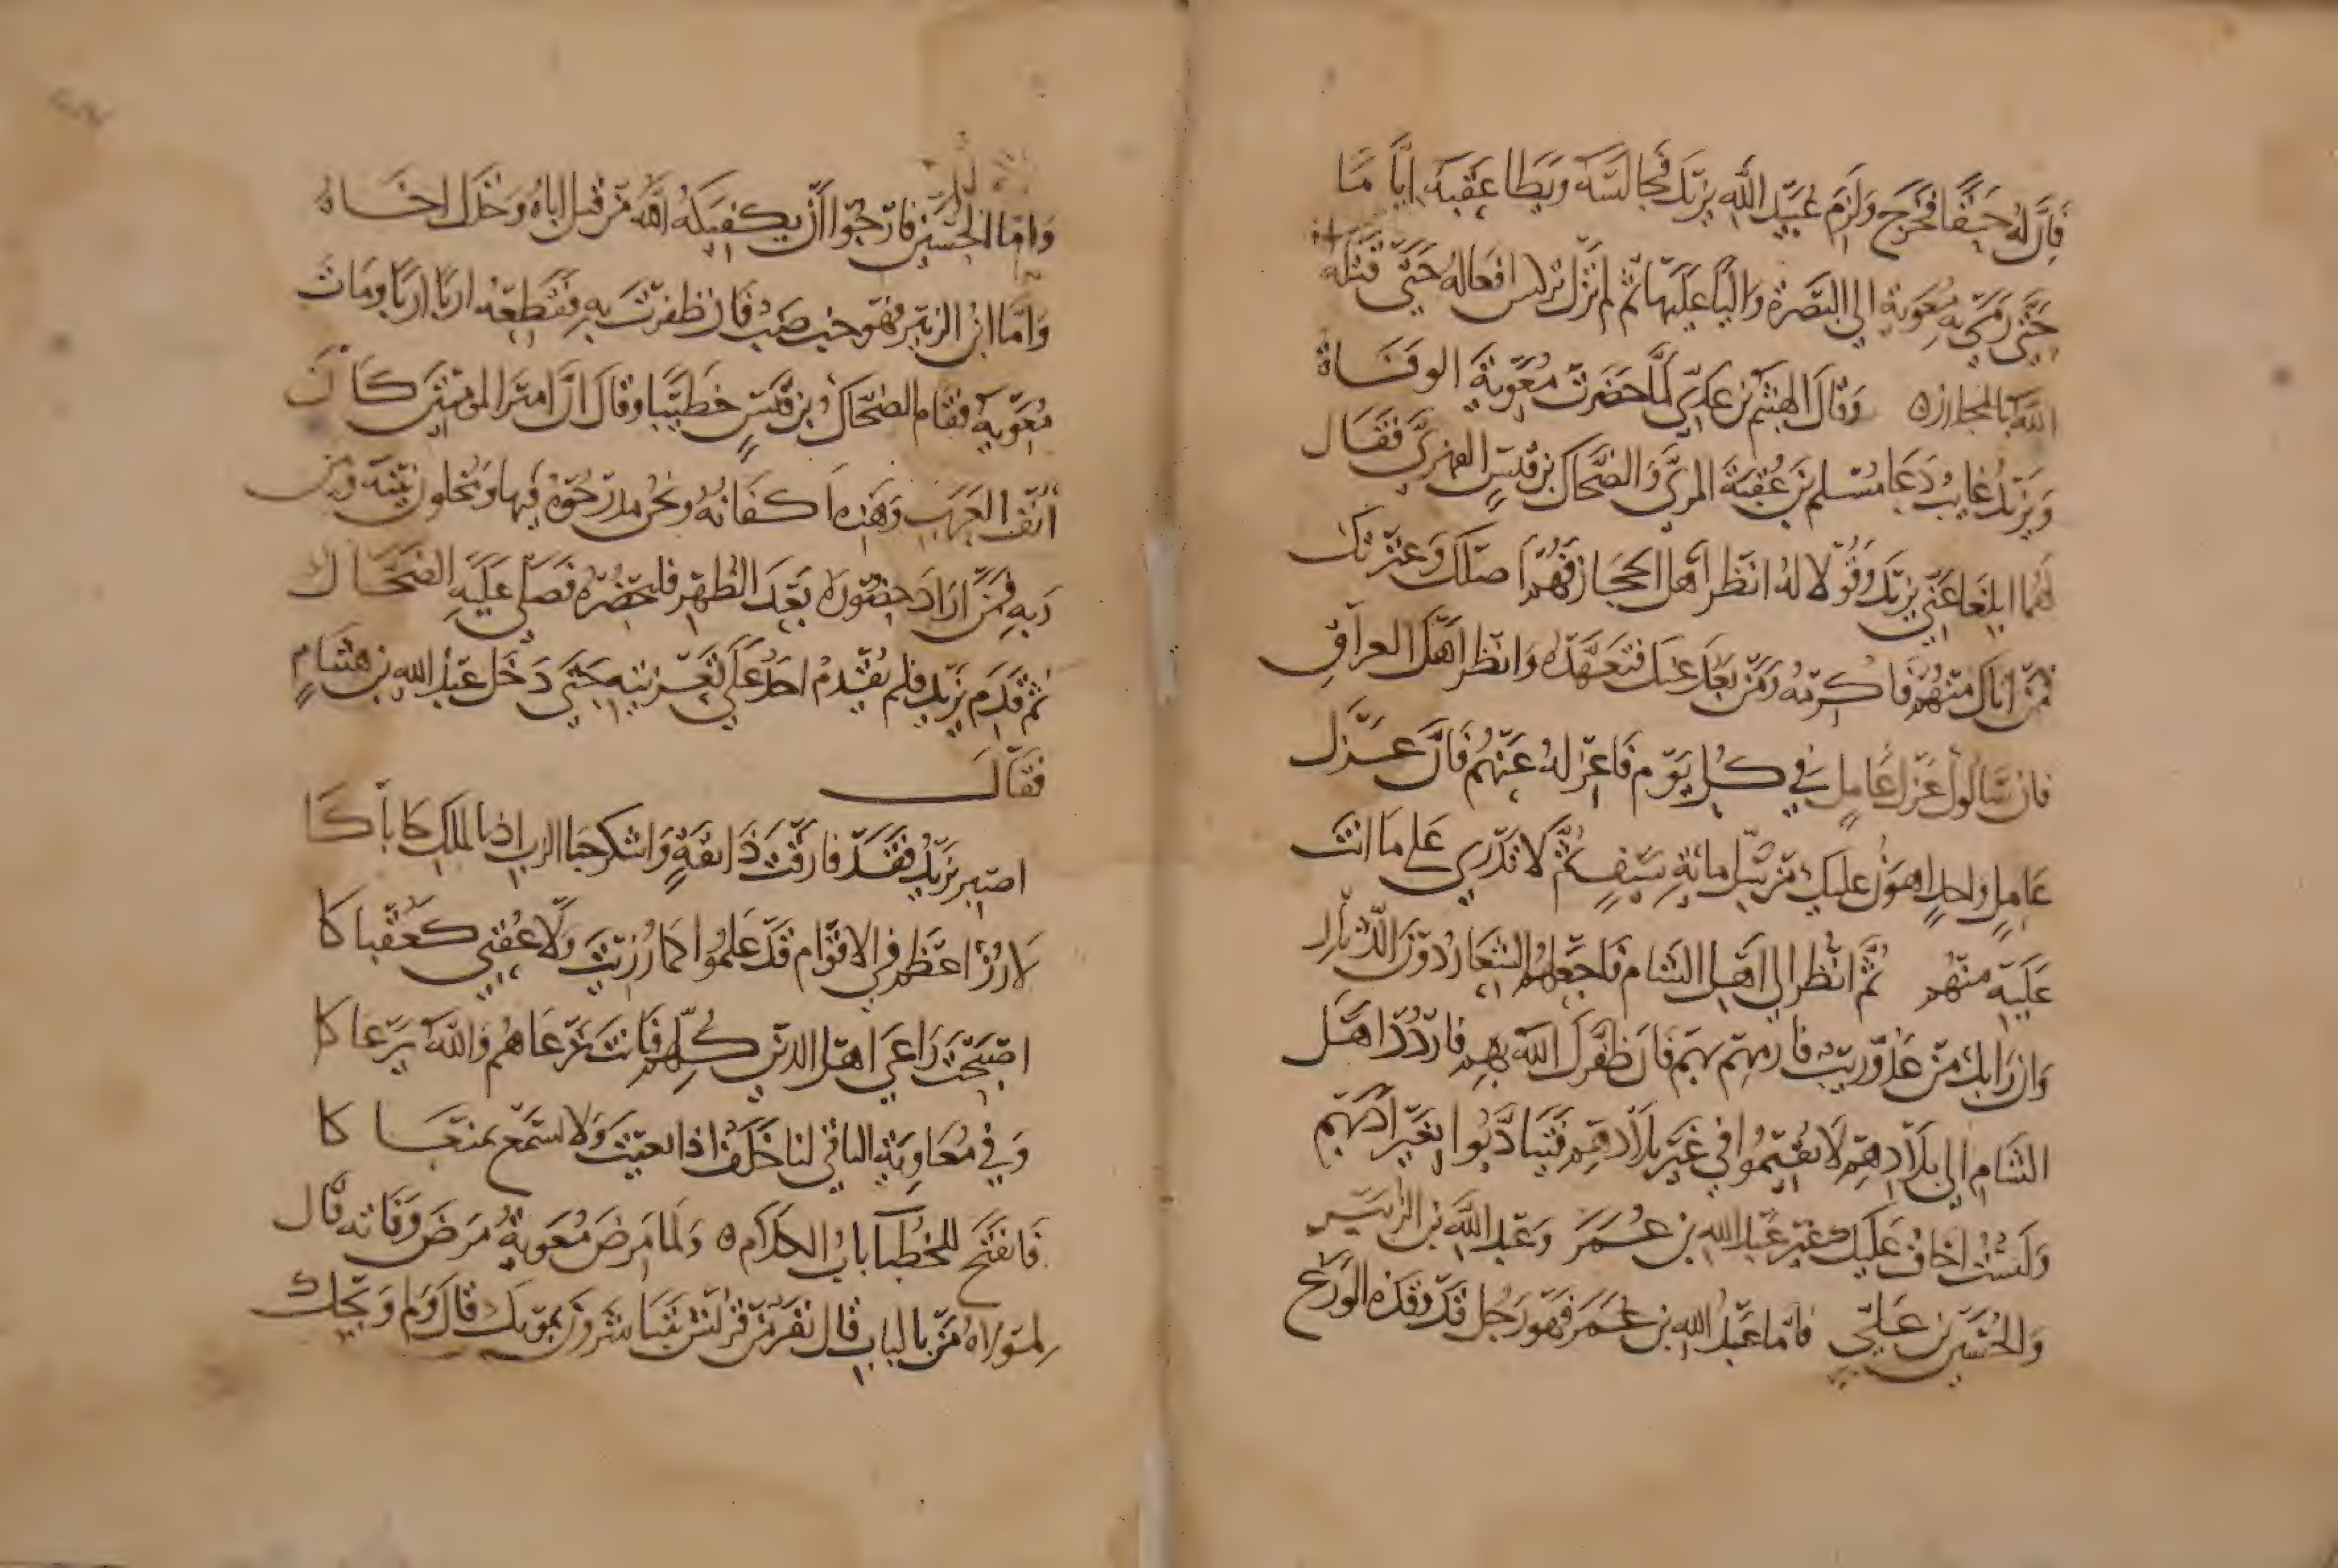 فان له حيفا فخرج ولزم عبيد الله يزيد فجالسه ويطا عقبه اياما
حتى رمى به معوية الى البصرة واليا عليها ثم لم تزل افعاله حتى قتله
الله بالجازر ه وقال الهيثم بن عدي لما حضرت معوية الوفاة
ويزيد غايب دعا مسلم بن عقبة المري والضحاك بن قيس الفهري فقال
لهما ابلغا عني يزيد وقولا له انظر اهل الحجاز فهم اصلك وعترتك
فمن اتاك منهم فاكرمه ومن بعد عنك فتعهده وانظر اهل العراق
فان سالوك عزل عامل في كل يوم فاعزله عنهم فان عزل
عامل واحد اهون عليك من سل ماية سيف ثم لا تدري على ما انت
عليه منهم ثم انظر الى اهل الشام فاجعلهم الشعار دون الدثار
وان رابك من عدو ريب فارمهم بهم فان ظفرك الله بهم فاردد اهل
الشام الى بلادهم لا يقيموا في غير بلادهم فيتادبوا بغير ادبهم
ولست اخاف عليك غير عبد الله بن عمر وعبد الله بن الزبير
والحسين بن علي فاما عبد الله بن عمر فهو رجل قد وقذه الورع
واما الحسين فارجوا ان يكفيكه الله بمن قتل اباه وخذل اخاه
واما ابن الزبير فهو خب ضب فان ظفرت به فقطعه اربا اربا ومات
معوية فقام الضحاك بن قيس خطيبا وقال ان امير المومنين كان
انف العرب وهذه اكفانه ونحن مدرجوه فيها ومخلون بينه وبين
ربه فمن اراد حضوره بعد الظهر فليحضره فصلى عليه الضحاك
ثم قدم يزيد فلم يقدم احد على تعزيته حتى دخل عبد الله بن هشام
فقال
اصبر يزيد فقد فارقت ذا ثقة واشكر حبا الذي بالملك حاباكا
لا رزا اعظم في الاقوام قد علموا كما رزيت ولا عقبى كعقباكا
اصبحت راعي اهل الدين كلهم فانت ترعاهم والله يرعاكا
وفي معاوية الباقي لنا خلف اذا نعيت ولا نسمع بمنعاكا
فانفتح للخطبا باب الكلام ه ولما مرض معوية مرض وفاته قال
لمولاه من بالباب قال نفر من قريش يتباشرون بموتك قال ولم ويحك